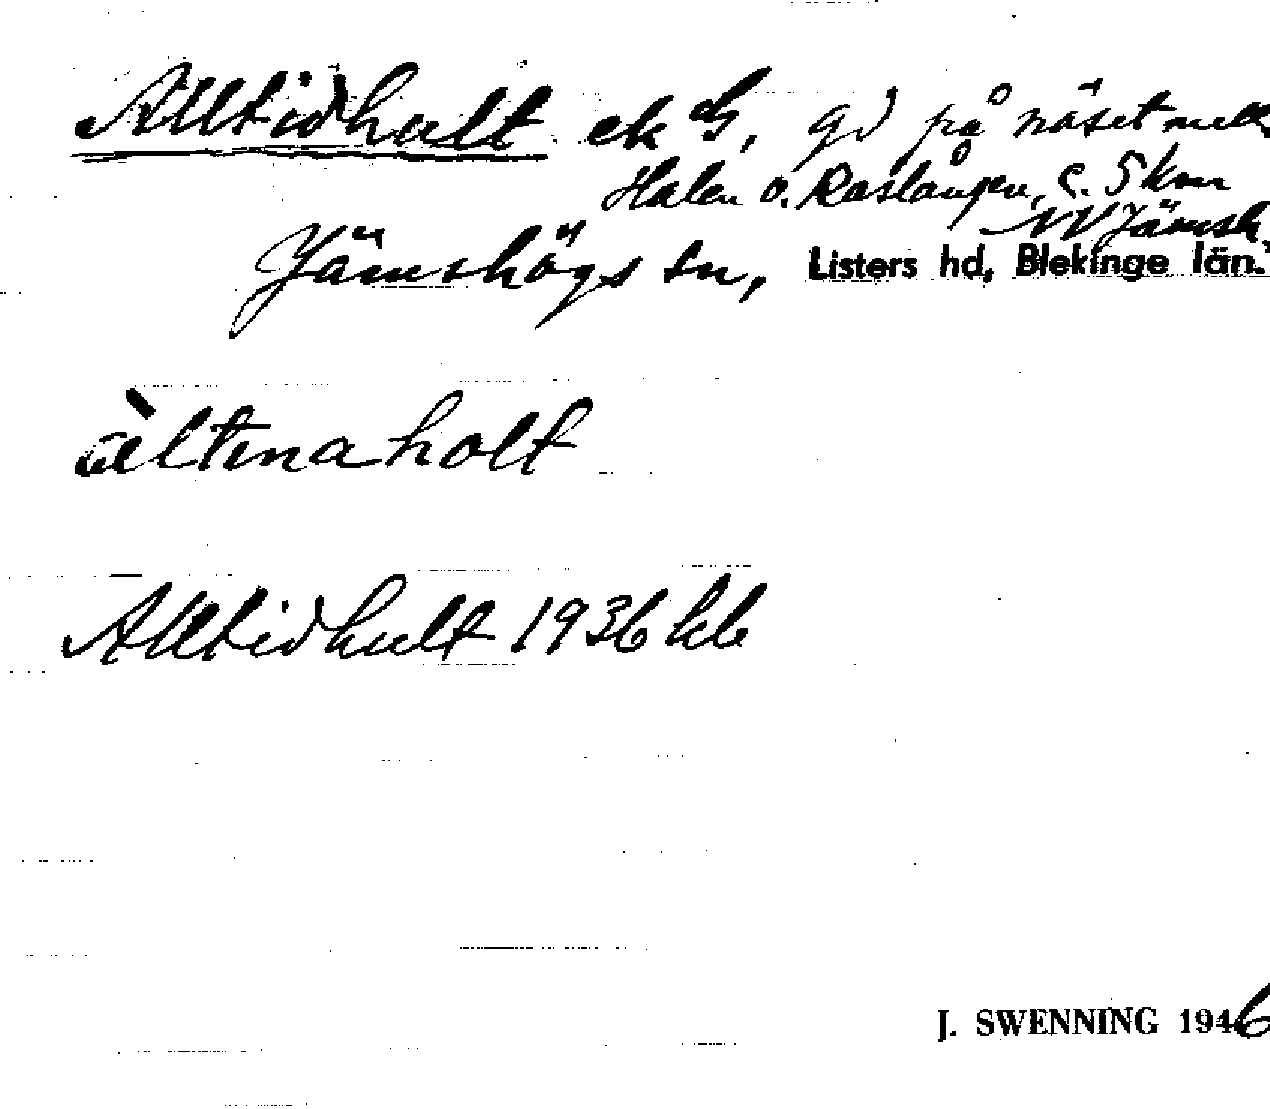 Alltidhult ek G, gd på näset mell.
Halen o. Raslången, c. 5 km
NV Jämsh.
Jämshögs sn, Listers hd, Blekinge län.
àltınaholt
Alltidhult 1936 kb
J. SWENNING 1946